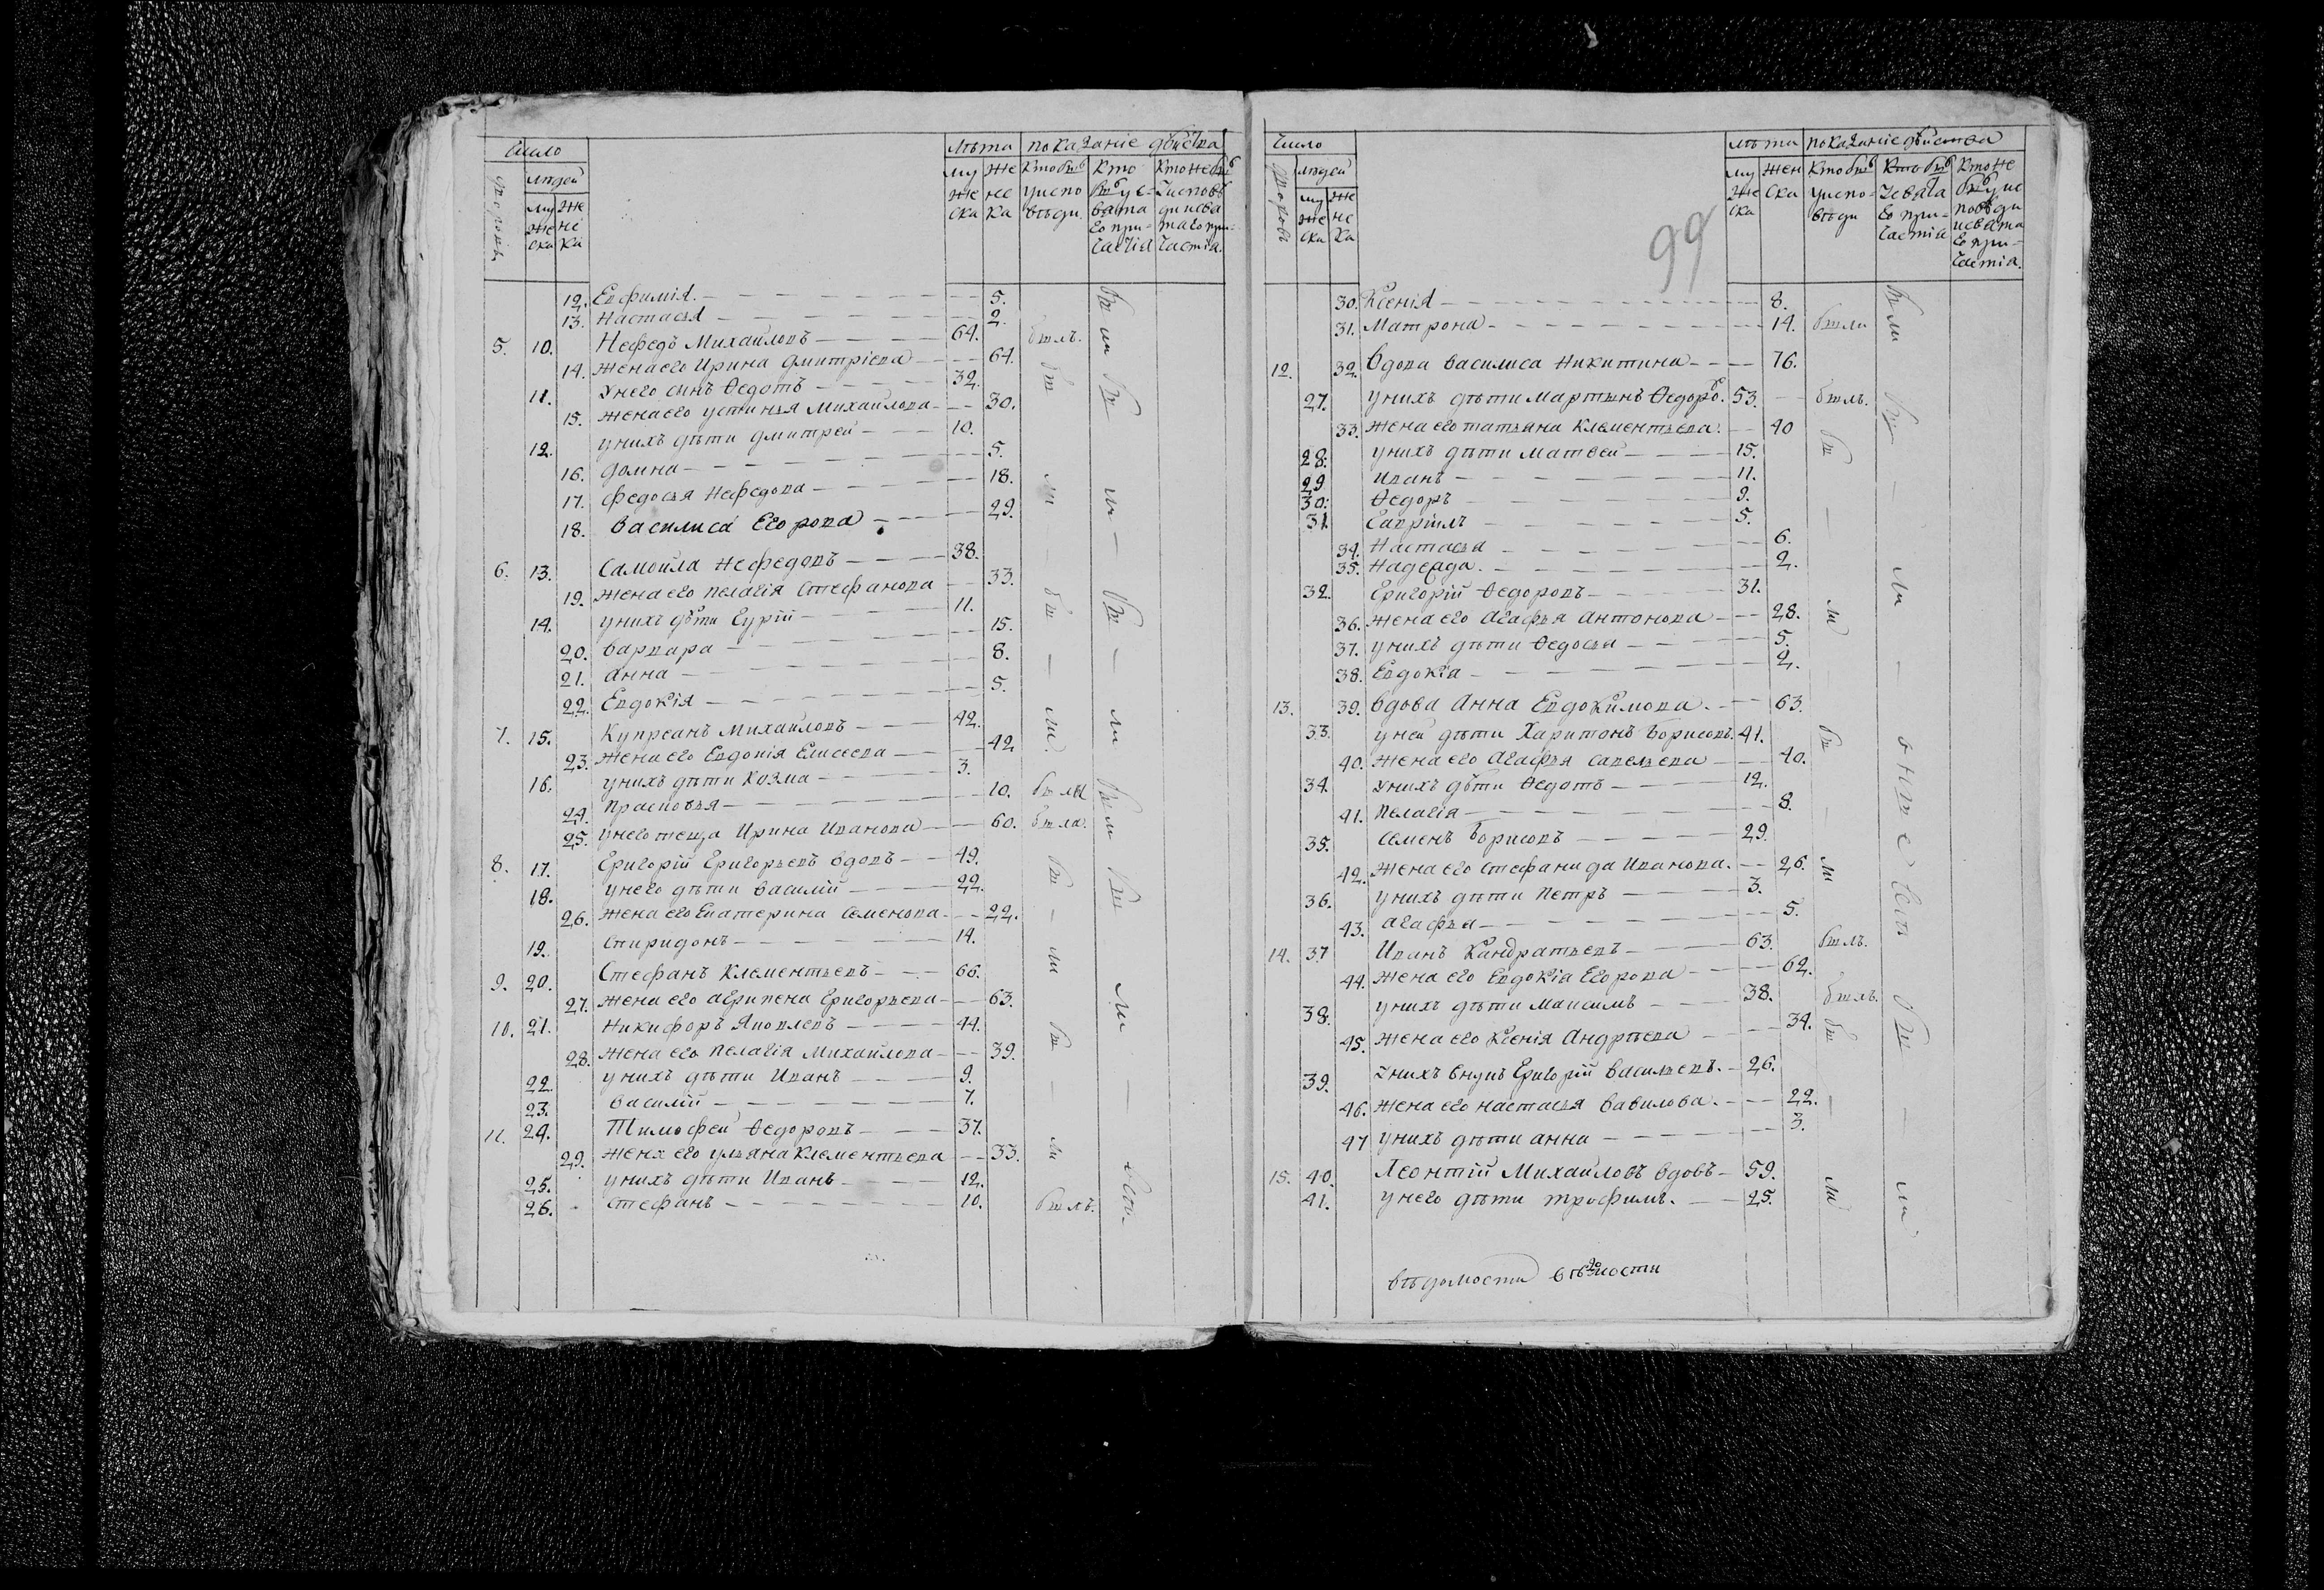 число лѣта показаніе дѣйства
дворовъ людей му же ска же нс ка кто былъ уиспо вѣди кто былъ ус вята го при частія кто не былъ уисповѣ ди исвя таго при частія
му же ска же нс ка
12. Евфимія 5.
13. Настасья 2.
5. 10. Нефедъ Михайловъ 64. былъ.
14. жена его Ирина Дмитріева 64.
11. Унего сынъ Ѳедотъ 32.
15. жена его устинья Михайлова 30.
12. унихъ дѣти дмитрей 10.
16. домна 5.
17. федосья Нефедова 18.
18. василиса Егорова 29.
6. 13. Самойла Нефедовъ 38.
19. жена его пелагія Стефанова 33.
14. унихъ дѣти Гурій 11.
20. варвара 15.
21. анна 8.
22. Евдокія 5.
7. 15. Купреанъ Михайловъ 42.
23. жена его Евдокія Елисеева 42
16. унихъ дѣти козма 3.
24. прасковья 10. была
25. унего теща Ирина Иванова 60. была.
8. 17. Григорій Григорьевъ вдовъ 49.
18. унего дѣти василій 22.
26. жена его Екатерина Семенова 22.
19. спиридонъ 14.
9. 20. Стефанъ Клементьевъ 66.
27. жена его агрипена Григорьева 63.
10. 21. Никифоръ Яковлевъ 44.
28. жена его пелагія Михайлова 39.
22. унихъ дѣти Иванъ 9.
23. василій 7.
11. 24. Тимофей Ѳедоровъ 37.
29. жена его ульяна Клементьева 33.
25. унихъ дѣти Иванъ 12.
26. стефанъ 10. былъ.
99
число лѣта показаніе дѣйства
дворовъ людей му же ска жен ска кто былъ уиспо вѣди кто былъ усвята го при частія кто не былъ уис повѣди исвята го при частія.
му же ска же нс ка
30. Ксенія 8.
31. Матрона 14. были
12. 32. вдова василиса никитина 76.
27. унихъ дѣти мартынъ Ѳедоров 53. былъ.
33. жена его татьяна Клементьева 40
28. унихъ дѣти матвей 15.
29 иванъ 11.
30. Ѳедоръ 9.
31. Гавріилъ 5.
34. Настасья 6.
35. Надежда 2.
32. Григорій Ѳедоровъ 31.
36. жена его агафья антонова 28.
37. унихъ дѣти Ѳедосья 5.
38. Евдокія 2.
13. 39. вдова Анна Евдокимова 63.
33. уней дѣти Харитонъ борисовъ 41.
40. жена его агафья савельева 40.
34. унихъ дѣти Ѳедотъ 12.
41. пелагія 8.
35. семенъ борисовъ 29.
42. жена его стефанида иванова 26.
36. унихъ дѣти петръ 3.
43. агафья 5.
14. 37 Иванъ Кандратьевъ 63. былъ.
44. жена его Евдокія Егорова 62.
38. унихъ дѣти максимъ 38. былъ.
45. жена его Ксенія Андрѣева 34.
39. унихъ внукъ Григорій васильевъ 26.
46. жена его настасья вавилова 22.
47 унихъ дѣти анна 3.
15. 40. Леонтій Михайловъ вдовъ 59.
41. унего дѣти трофимъ 25.
вѣдомости